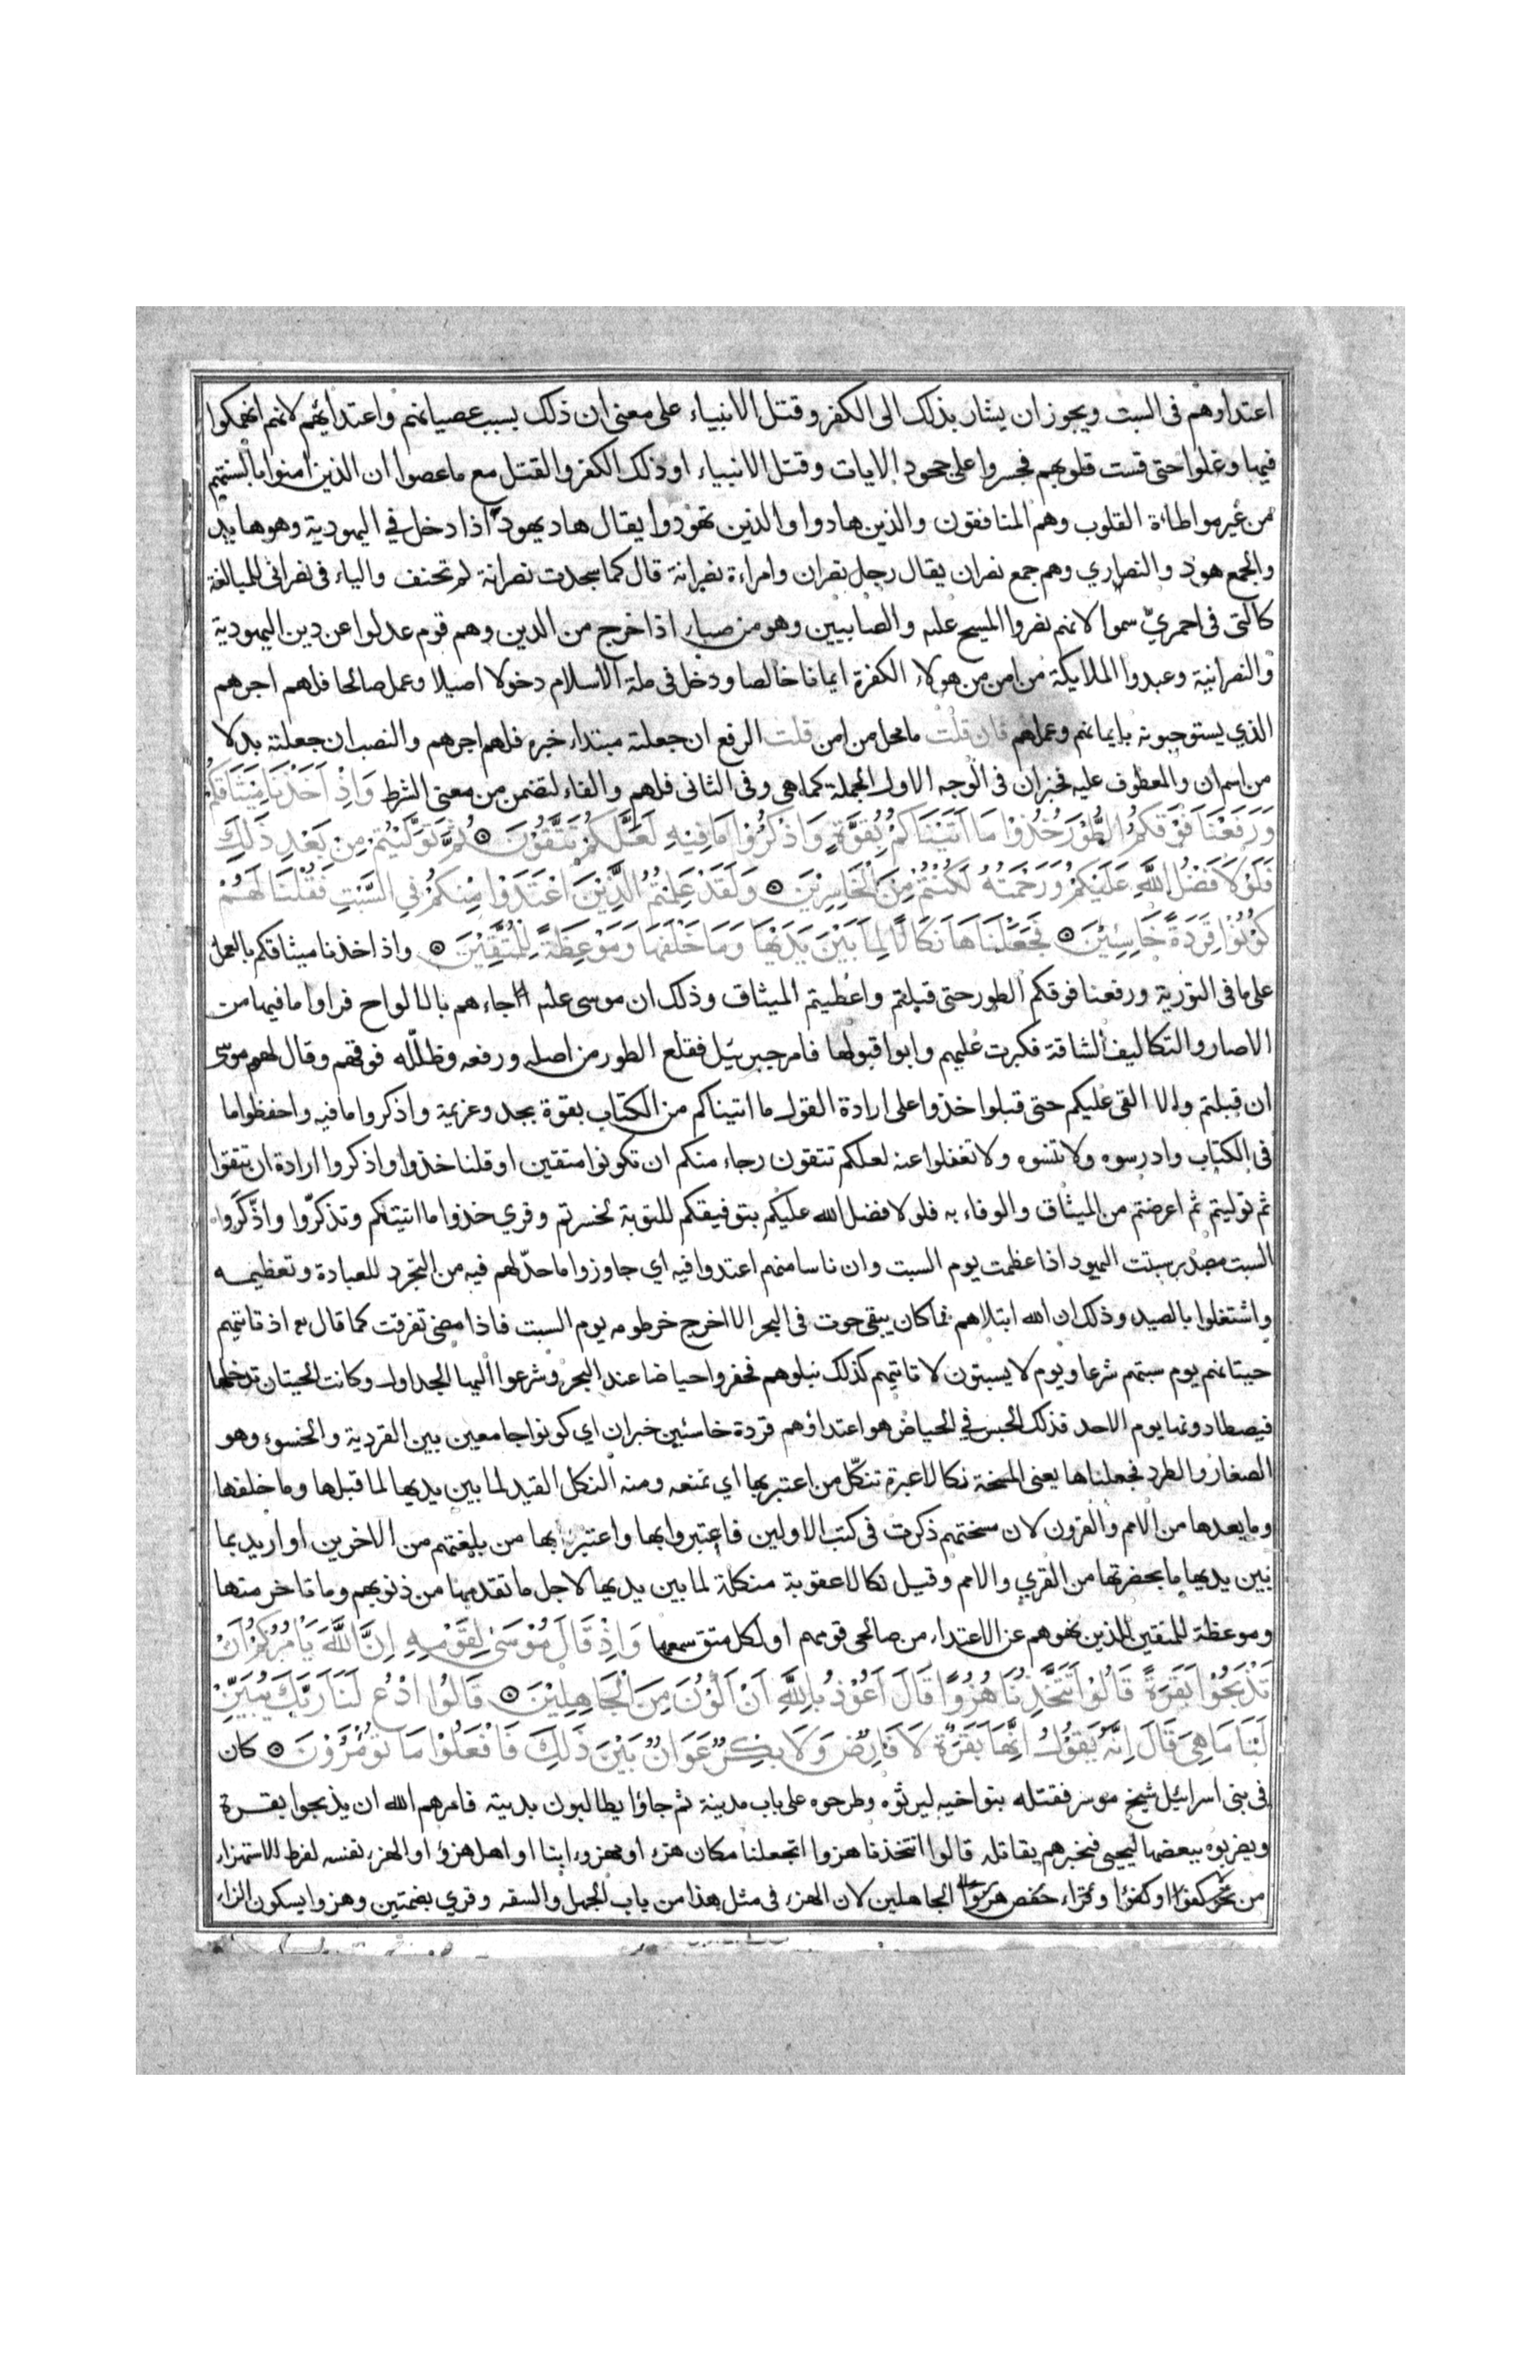 اعتداوهم فى السبت ويجوز ان يشار بذلك الى الكفر وقتل الانبياء على معنى ان ذلك بسبب عصيانهم واعتدائهم لانهم انهمكوا
فيها وغلوا حتى قست قلوبهم فجسروا على جحود الايات وقتل الانبياء او ذلك الكفر والقتل مع ما عصوا ان الذين امنوا بالسنتهم
من غير مواطاءة القلوب وهم المنافقون والذين هادوا والذين تهودوا يقال هاد يهود اذا دخل في اليهودية وهو هايد
والجمع هود والنصاري وهم جمع نصران يقال رجل نصران وامراءة نصرانة قال كما سجدت نصرانة لم تحنف والياء فى نصرانى للمبالغة
كالتى فى احمريّ سموا لانهم نصروا المسيح عليه والصابيين وهو من صباء اذا خرج من الدين وهم قوم عدلوا عن دين اليهودية
والنصرانية وعبدوا الملايكة من امن من هولاء الكفرة ايمانا خالصا ودخل فى ملة الاسلام دخولا اصيلا وعمل صالحا فلهم اجرهم
الذي يستوجبونه بايمانهم وعملهم فان قلت ما محل من امن قلت الرفع ان جعلته مبتداء خبره فلهم اجرهم والنصب ان جعلته بدلا
من اسم ان والمعطوف عليه فخبر ان فى الوجه الاول الجملة كما هى وفى الثانى فلهم والفاء لتضمن من معنى الشرط وَاِذْ اَخَذْنَا مِيثَاقَكُمْ
وَرَفَعْنَا فَوْقَكُمُ الطُّوْرَ خُذُوْا مَا اَتَيْنَاكُمْ بِقُوَّةٍ وَاذْكُرُوْا مَا فِيْهِ لَعَلَّكُمْ تَتَّقُوْنَ ۞ ثُمَّ تَوَلَّيْتُمْ مِنْ بَعْدِ ذَلِكَ
فَلَوْلَا فَضْلُ اللَّهِ عَلَيْكُمْ وَرَحْمَتُهُ لَكُنْتُمْ مِنَ الْخَاسِرِيْنَ ۞ وَلَقَدْ عَلِمْتُمُ الَّذِيْنَ اعْتَدَوْا مِنْكُمْ فِي السَّبْتِ فَقُلْنَا لَهُمْ
كُوْنُوْا قِرَدَةً خَاسِئِيْنَ ۞ فَجَعَلْنَاهَا نَكَالًا لِمَا بَيْنَ يَدَيْهَا وَمَا خَلْفَهَا وَمَوْعِظَةً لِلْمُتَّقِيْنَ ۞ واذ اخذنا ميثاقكم بالعمل
على ما فى التورية ورفعنا فوقكم الطور حتى قبلتم واعطيتم الميثاق وذلك ان موسى عليه جاءهم بالالواح فراوا ما فيها من
الاصار والتكاليف الشاقة فكبرت عليهم وابوا قبولها فامر جبرئيل فقلع الطور من اصله ورفعه وظلله فوقهم وقال لهم موسى
ان قبلتم والا القى عليكم حتى قبلوا خذوا على ارادة القول ما اتيناكم من الكتاب بقوة بجد وعزيمة واذكروا ما فيه واحفظوا ما
فى الكتاب وادرسوه ولا تنسوه ولا تغفلوا عنه لعلكم تتقون رجاء منكم ان تكونوا متقين او قلنا خذوا واذكروا ارادة ان تتقوا
ثم توليتم ثم اعرضتم من الميثاق والوفاء به فلولا فضل الله عليكم بتوفيقكم للتوبة لخسرتم وقري خذوا ما اتيتكم وتذكرّوا واذّكروا
السبت مصدر سبتت اليهود اذا عظمت يوم السبت وان ناسا منهم اعتدوا فيه اي جاوزوا ما حدّ لهم فيه من التجرد للعبادة وتعظيمه
واشتغلوا بالصيد وذلك ان الله ابتلاهم فما كان يبقى حوت فى البحر الا اخرج خرطومه يوم السبت فاذا مضى تفرقت كما قال تع اذ تاتيهم
حيتانهم يوم سبتهم شرعا ويوم لا يسبتون لا تاتيهم كذلك نبلوهم فحفروا حياضا عند البحر وشرعوا اليها الجداول وكانت الحيتان تدخلها
فيصطادونها يوم الاحد فذلك الحبس في الحياض هو اعتداؤهم قردة خاسئين خبران اي كونوا جامعين بين القردية والخسوء وهو
الصغار والطرد فجعلناها يعنى المسخة نكالا عبرة تنكّل من اعتبر بها اي تمنعه ومنه النكل القيد لما بين يديها لما قبلها وما خلفها
وما بعدها من الامم والقرون لان مسختهم ذكرت فى كتب الاولين فاعتبروا بها واعتبر بها من بلغتهم من الاخرين او اريد بما
بين يديها ما بحضرتها من القري والامم وقيل نكالا عقوبة منكلة لما بين يديها لاجل ما تقدمها من ذنوبهم وما تاخر منها
وموعظة للمتقين للذين نهوهم عن الاعتداء من صالحى قومهم او لكل متق سمعها وَاِذْ قَالَ مُوْسَى لِقَوْمِهِ اِنَّ اللَّهَ يَامُرُكُمْ اَنْ
تَذْبَحُوْا بَقَرَةً قَالُوْا اَتَتَّخِذُنَا هُزُوًا قَالَ اَعُوْذُ بِاللَّهِ اَنْ اَكُوْنَ مِنَ الْجَاهِلِيْنَ ۞ قَالُوْا ادْعُ لَنَا رَبَّكَ يُبَيِّنْ
لَنَا مَا هِيَ قَالَ اِنَّهُ يَقُوْلُ اِنَّهَا بَقَرَةٌ لَا فَارِضٌ وَلَا بِكْرٌ عَوَانٌ بَيْنَ ذَلِكَ فَافْعَلُوْا مَا تُؤْمَرُوْنَ ۞ كان
فى بنى اسرائيل شيخ موسر فقتله بنو اخيه ليرثوه وطرحوه على باب مدينة ثم جاؤا يطالبون بديته فامرهم الله ان يذبحوا بقرة
ويضربوه ببعضها ليحيى فيخبرهم بقاتله قالوا اتتخذنا هزوا اتجعلنا مكان هزء او مهزوء ابنا او اهل هزؤ او الهزء نفسه لفرط الاستهزاء
من نحو كفوا او كفؤا وقراء حفص هزوا الجاهلين لان الهزء فى مثل هذا من باب الجهل والسفه وقري بضمتين وهزوا بسكون الزاء